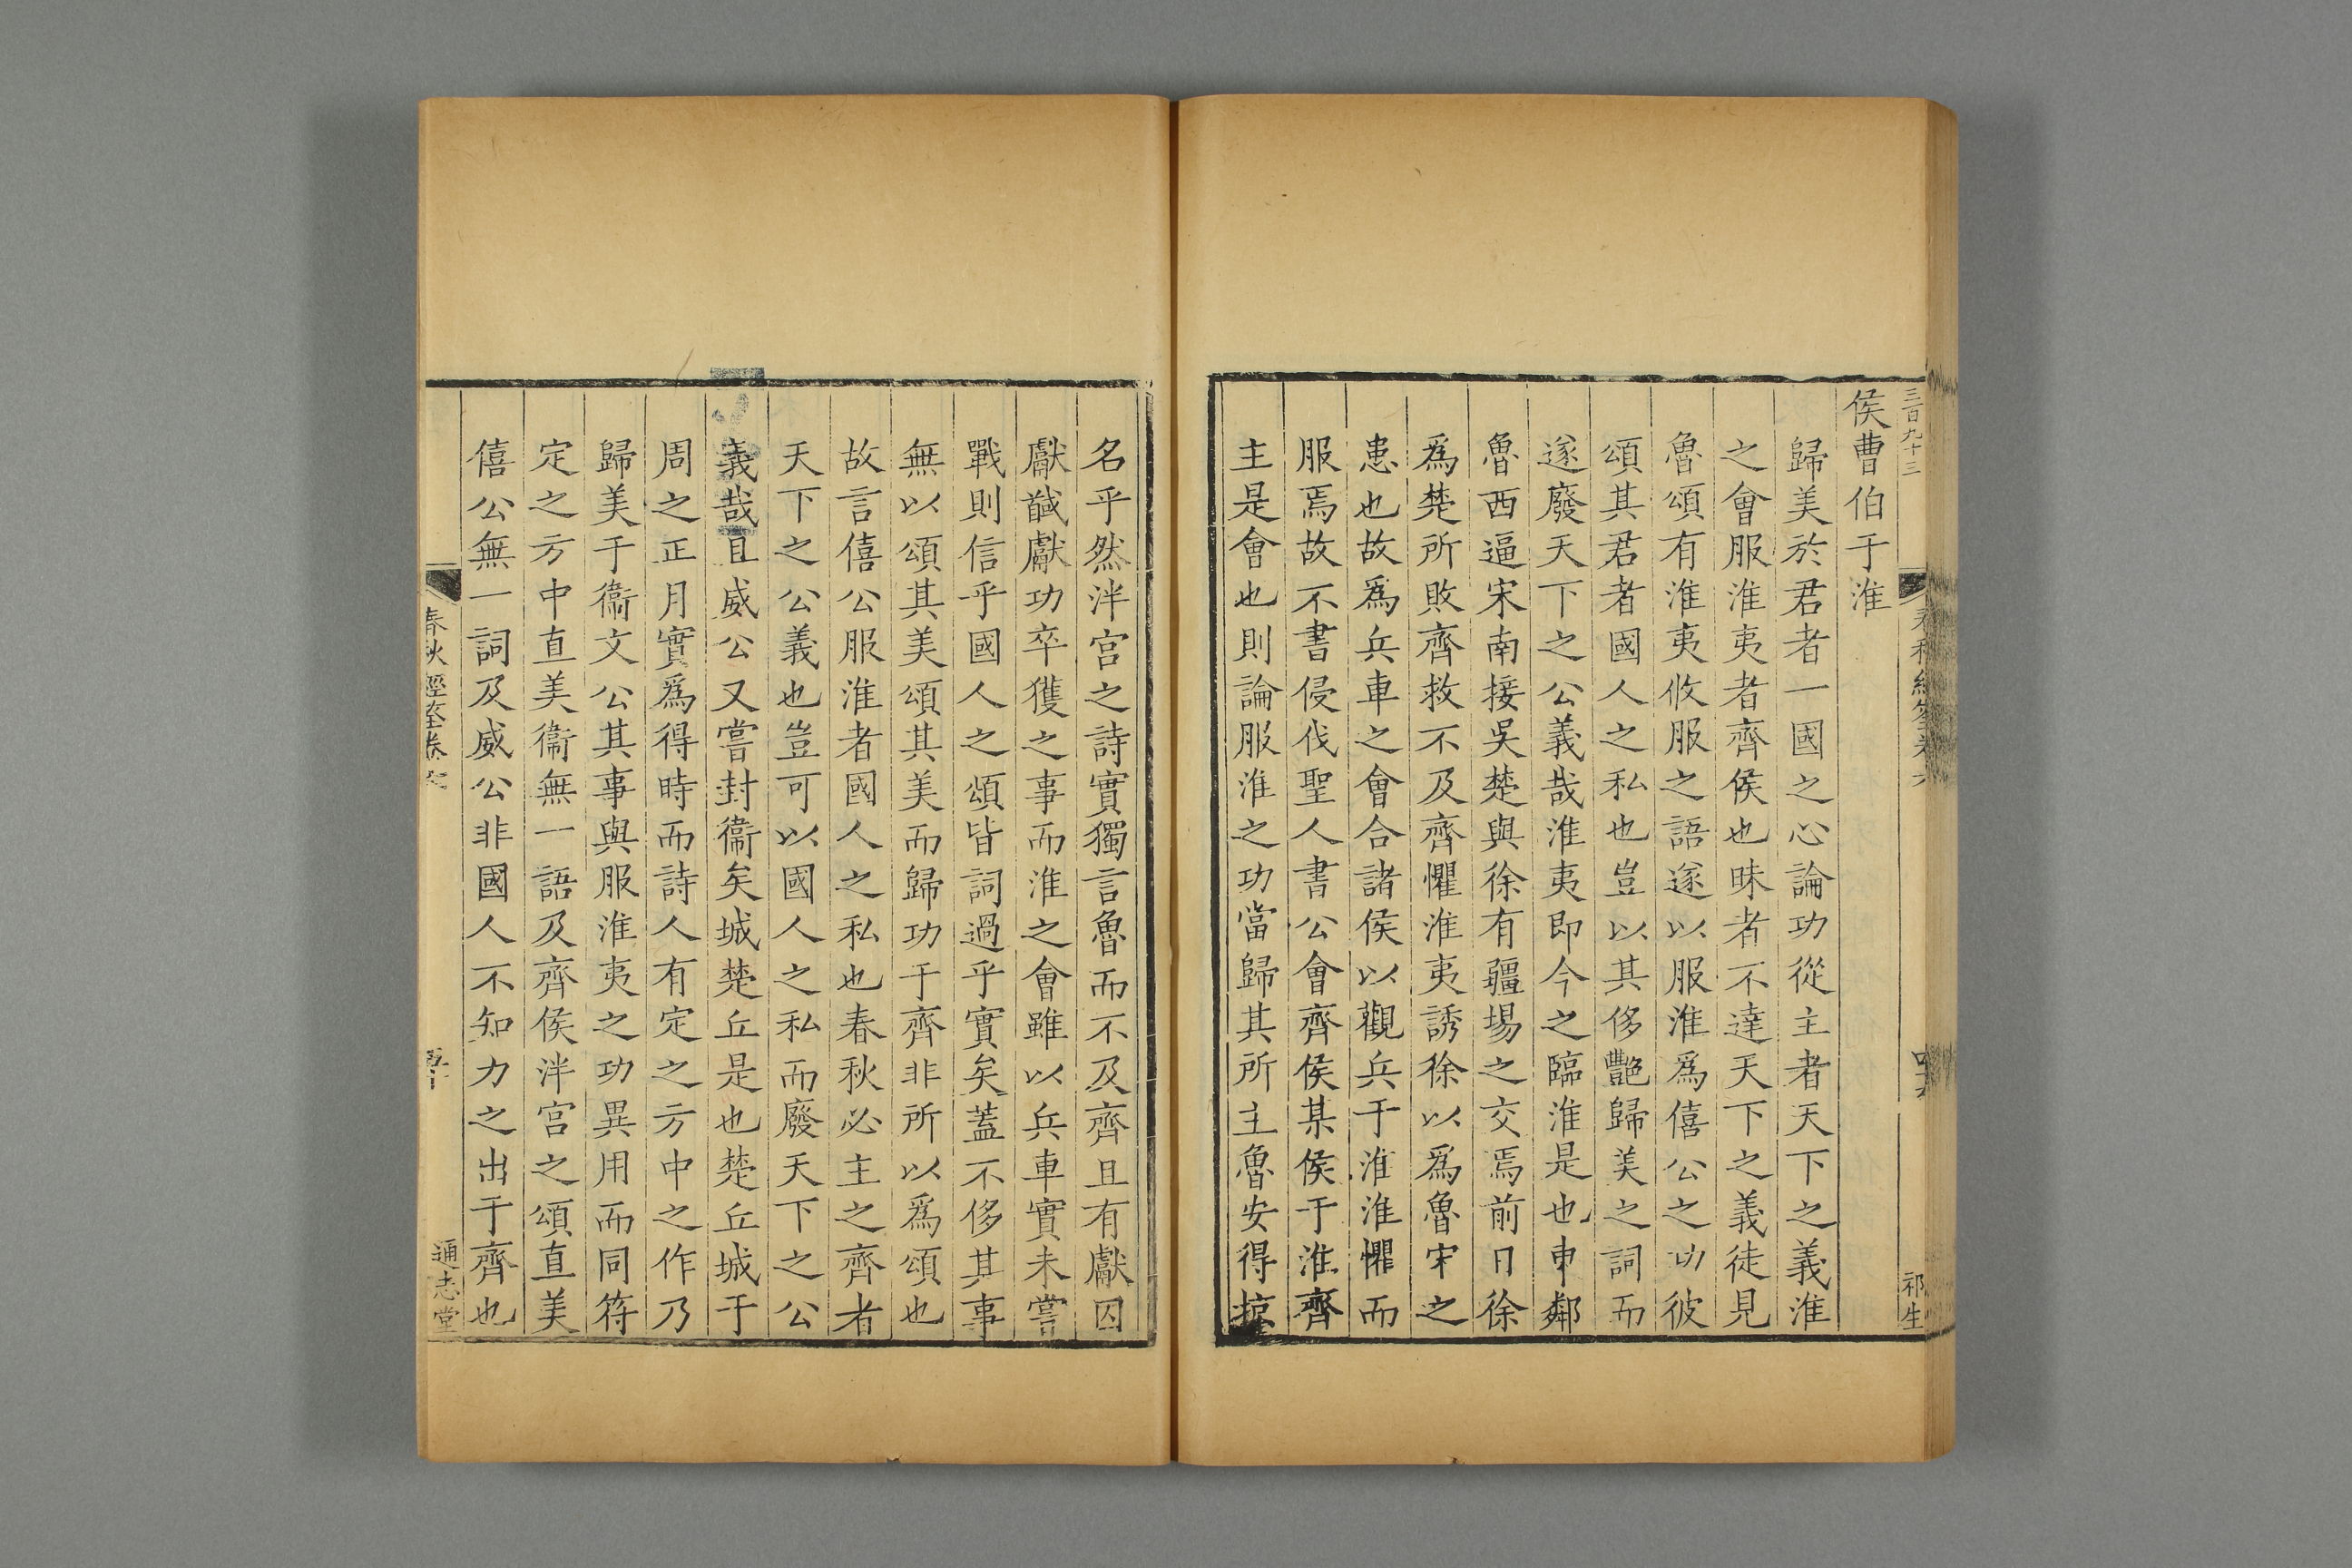 三百九十三
祁生
侯曹伯于淮
歸美於君者一國之心論功從主者天下之義淮
之會服淮夷者齊侯也昧者不達天下之義徒見
魯頌有淮夷攸服之語遂以服淮爲僖公之功彼
頌其君者國人之私也豈以其侈艷歸美之詞而
遂廢天下之公義哉淮夷即今之臨淮是也東鄰
魯西逼宋南接吳楚與徐有疆場之交焉前日徐
爲楚所敗齊救不及齊懼淮夷誘徐以爲魯宋之
患也故爲兵車之會合諸侯以觀兵于淮淮懼而
服焉故不書侵伐聖人書公會齊侯某侯于淮齊
主是會也則論服淮之功當歸其所主魯安得掠
名乎然泮宮之詩實獨言魯而不及齊且有獻囚
獻馘獻功卒獲之事而淮之會雖以兵車實未嘗
戰則信乎國人之頌皆詞過乎實矣蓋不侈其事
無以頌其美頌其美而歸功于齊非所以爲頌也
故言僖公服淮者國人之私也春秋必主之齊者
天下之公義也豈可以國人之私而廢天下之公
義哉且威公又嘗封衞矣城楚丘是也楚丘城于
周之正月實爲得時而詩人有定之方中之作乃
歸美于衞文公其事與服淮夷之功異用而同符
定之方中直美衞無一語及齊侯泮宮之頌直美
僖公無一詞及威公非國人不知力之出于齊也
春秋經筌卷六
通志堂